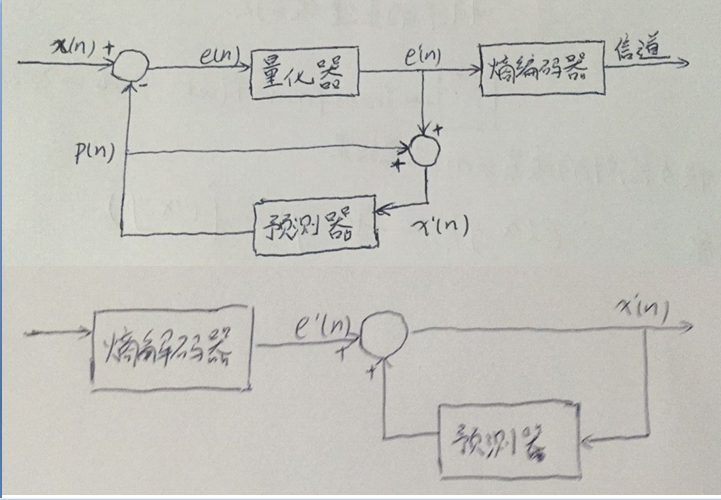 x(n) + e(n) 量化器 e'(n) 熵编码器 信道
-
+
p(n) +
预测器 x'(n)
熵解码器 e'(n) x'(n)
+
+
预测器